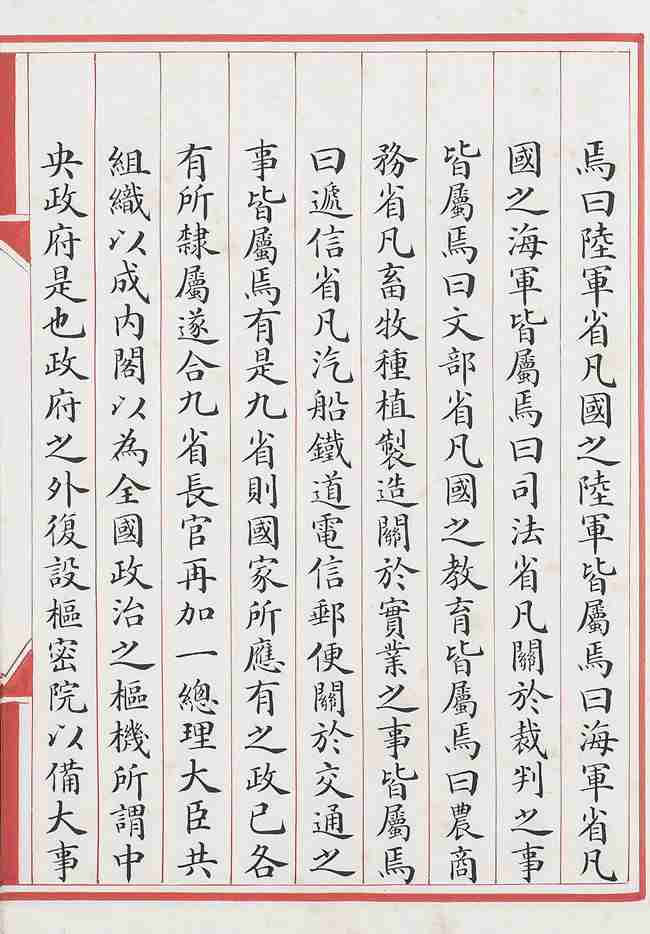 焉曰陸軍省凡國之陸軍皆屬焉曰海軍省凡
國之海軍皆屬焉曰司法省凡關於裁判之事
皆屬焉曰文部省凡國之教育皆屬焉曰農商
務省凡畜牧種植製造關於實業之事皆屬焉
曰遞信省凡汽船鐵道電信郵便關於交通之
事皆屬焉有是九省則國家所應有之政已各
有所隸屬遂合九省長官再加一總理大臣共
組織以成內閣以為全國政治之樞機所謂中
央政府是也政府之外復設樞密院以備大事